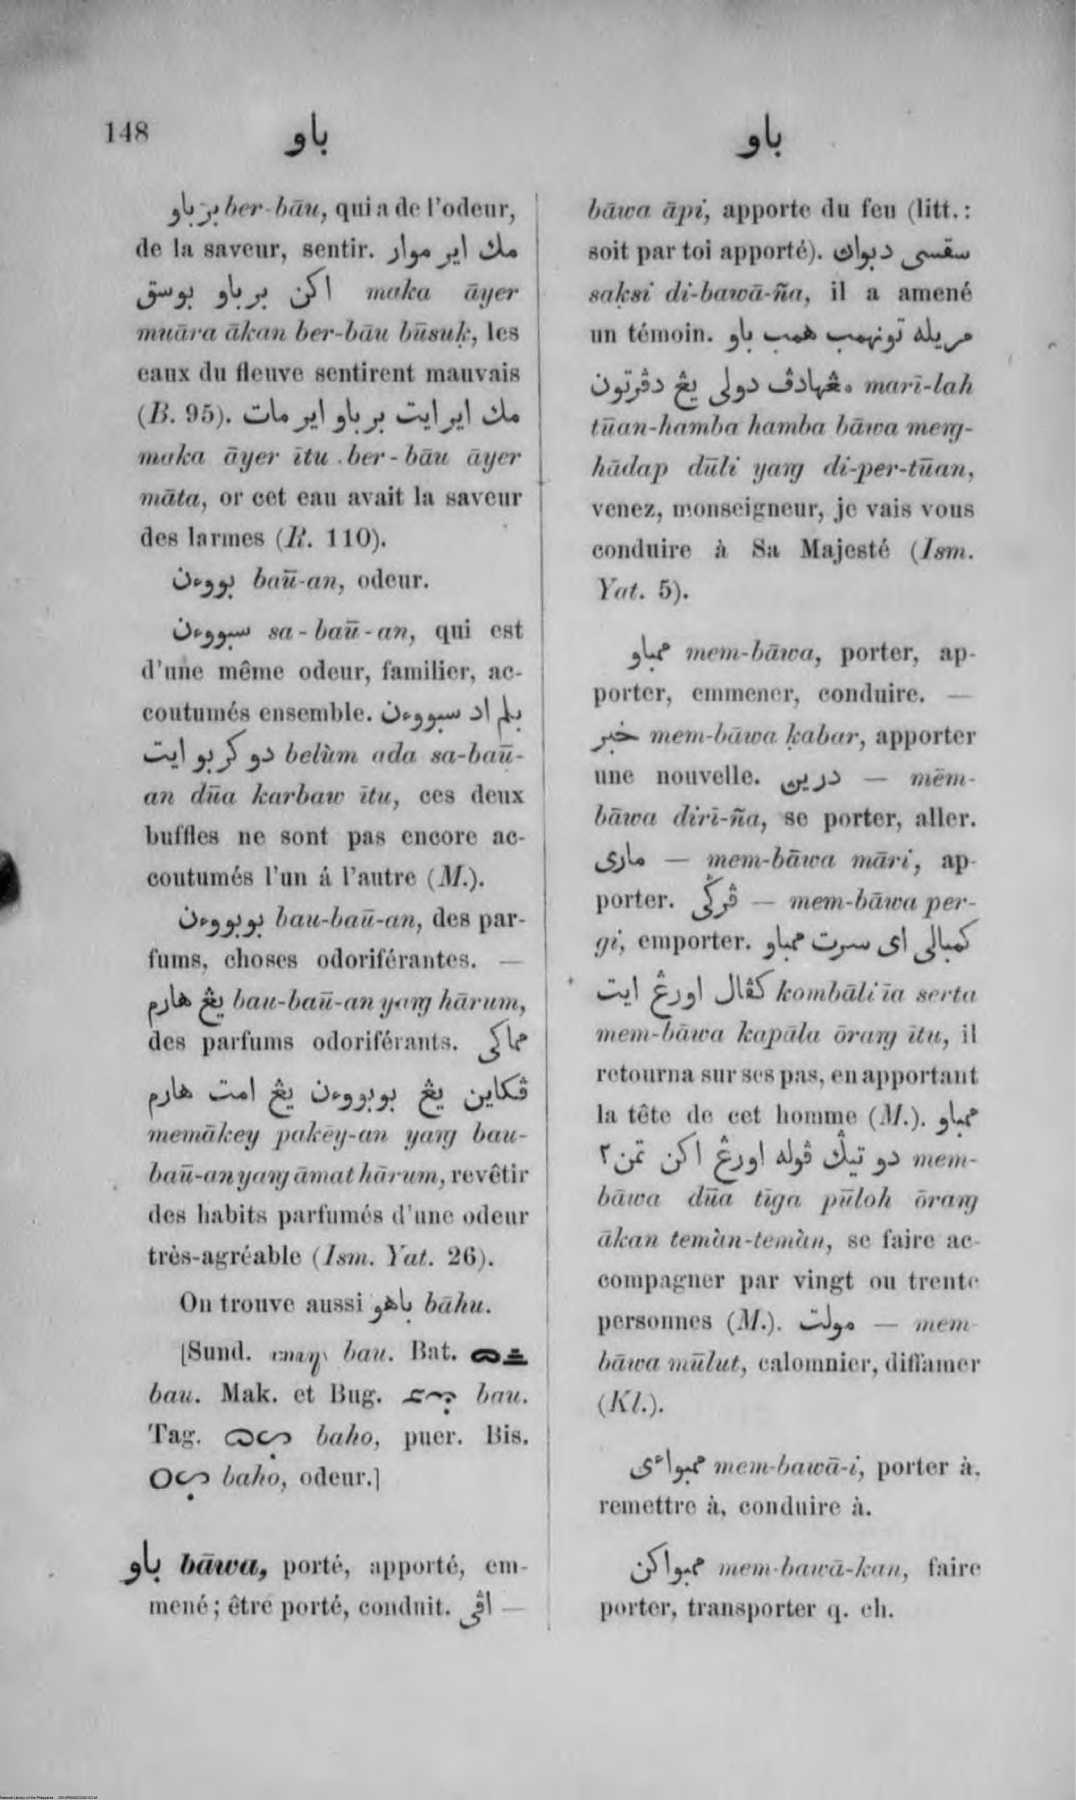 148
باو
باو
برباو ber-bāu, qui a de l'odeur,
de la saveur, sentir. مك اير موار
اكن برباو بوسق maka āyer
muāra ākan ber-bāu būsuḳ, les
eaux du fleuve sentirent mauvais
(R. 95). مك اير ايت برباو اير مات
maka āyer ītu ber-bāu āyer
māta, or cet eau avait la saveur
des larmes (R. 110).
بووءن baū-an, odeur.
سبووءن sa-baū-an, qui est
d'une même odeur, familier, ac-
coutumés ensemble. بلم اد سبووءن
دو كربو ايت belùm ada sa-baū-
an dūa karbaw ītu, ces deux
buffles ne sont pas encore ac-
coutumés l'un á l'autre (M.).
بوبووءن bau-baū-an, des par-
fums, choses odoriférantes. —
يڠ هارم bau-baū-an yaŋ hārum,
des parfums odoriférants. مماكي
ڤكاين يڠ بوبووءن يڠ امت هارم
memākey pakēy-an yaŋ bau-
baū-an yaŋ āmat hārum, revêtir
des habits parfumés d'une odeur
très-agréable (Ism. Yat. 26).
On trouve aussi باهو bāhu.
[Sund. bau. Bat.
bau. Mak. et Bug. bau.
Tag. baho, puer. Bis.
baho, odeur.]
باو bāwa, porté, apporté, em-
mené; être porté, conduit. اڤي —
bāwa āpi, apporte du feu (litt.:
soit par toi apporté). سقسي دبواڽ
saḳsi di-bawā-ña, il a amené
un témoin. مريله تونهمب همب باو
مڠهادڤ دولي يڠ دڤرتون marī-lah
tūan-hamba hamba bāwa meŋ-
hādap dūli yaŋ di-per-tūan,
venez, monseigneur, je vais vous
conduire à Sa Majesté (Ism.
Yat. 5).
ممباو mem-bāwa, porter, ap-
porter, emmener, conduire. —
خبر mem-bāwa ḳabar, apporter
une nouvelle. درين — mem-
bāwa dirī-ña, se porter, aller.
ماري — mem-bāwa māri, ap-
porter. ڤرڬي — mem-bāwa per-
gi, emporter. كمبالي اي سرت ممباو
كڤال اورڠ ايت kombāli īa serta
mem-bāwa kapāla ōraŋ ītu, il
retourna sur ses pas, en apportant
la tête de cet homme (M.). ممباو
دو تيڬ ڤوله اورڠ اكن تمن٢ mem-
bāwa dūa tīga pūloh ōraŋ
ākan temàn-temàn, se faire ac-
compagner par vingt ou trente
personnes (M.). مولت — mem-
bāwa mūlut, calomnier, diffamer
(Kl.).
ممبواءي mem-bawā-i, porter à,
remettre à, conduire à.
ممبواكن mem-bawā-kan, faire
porter, transporter q. ch.